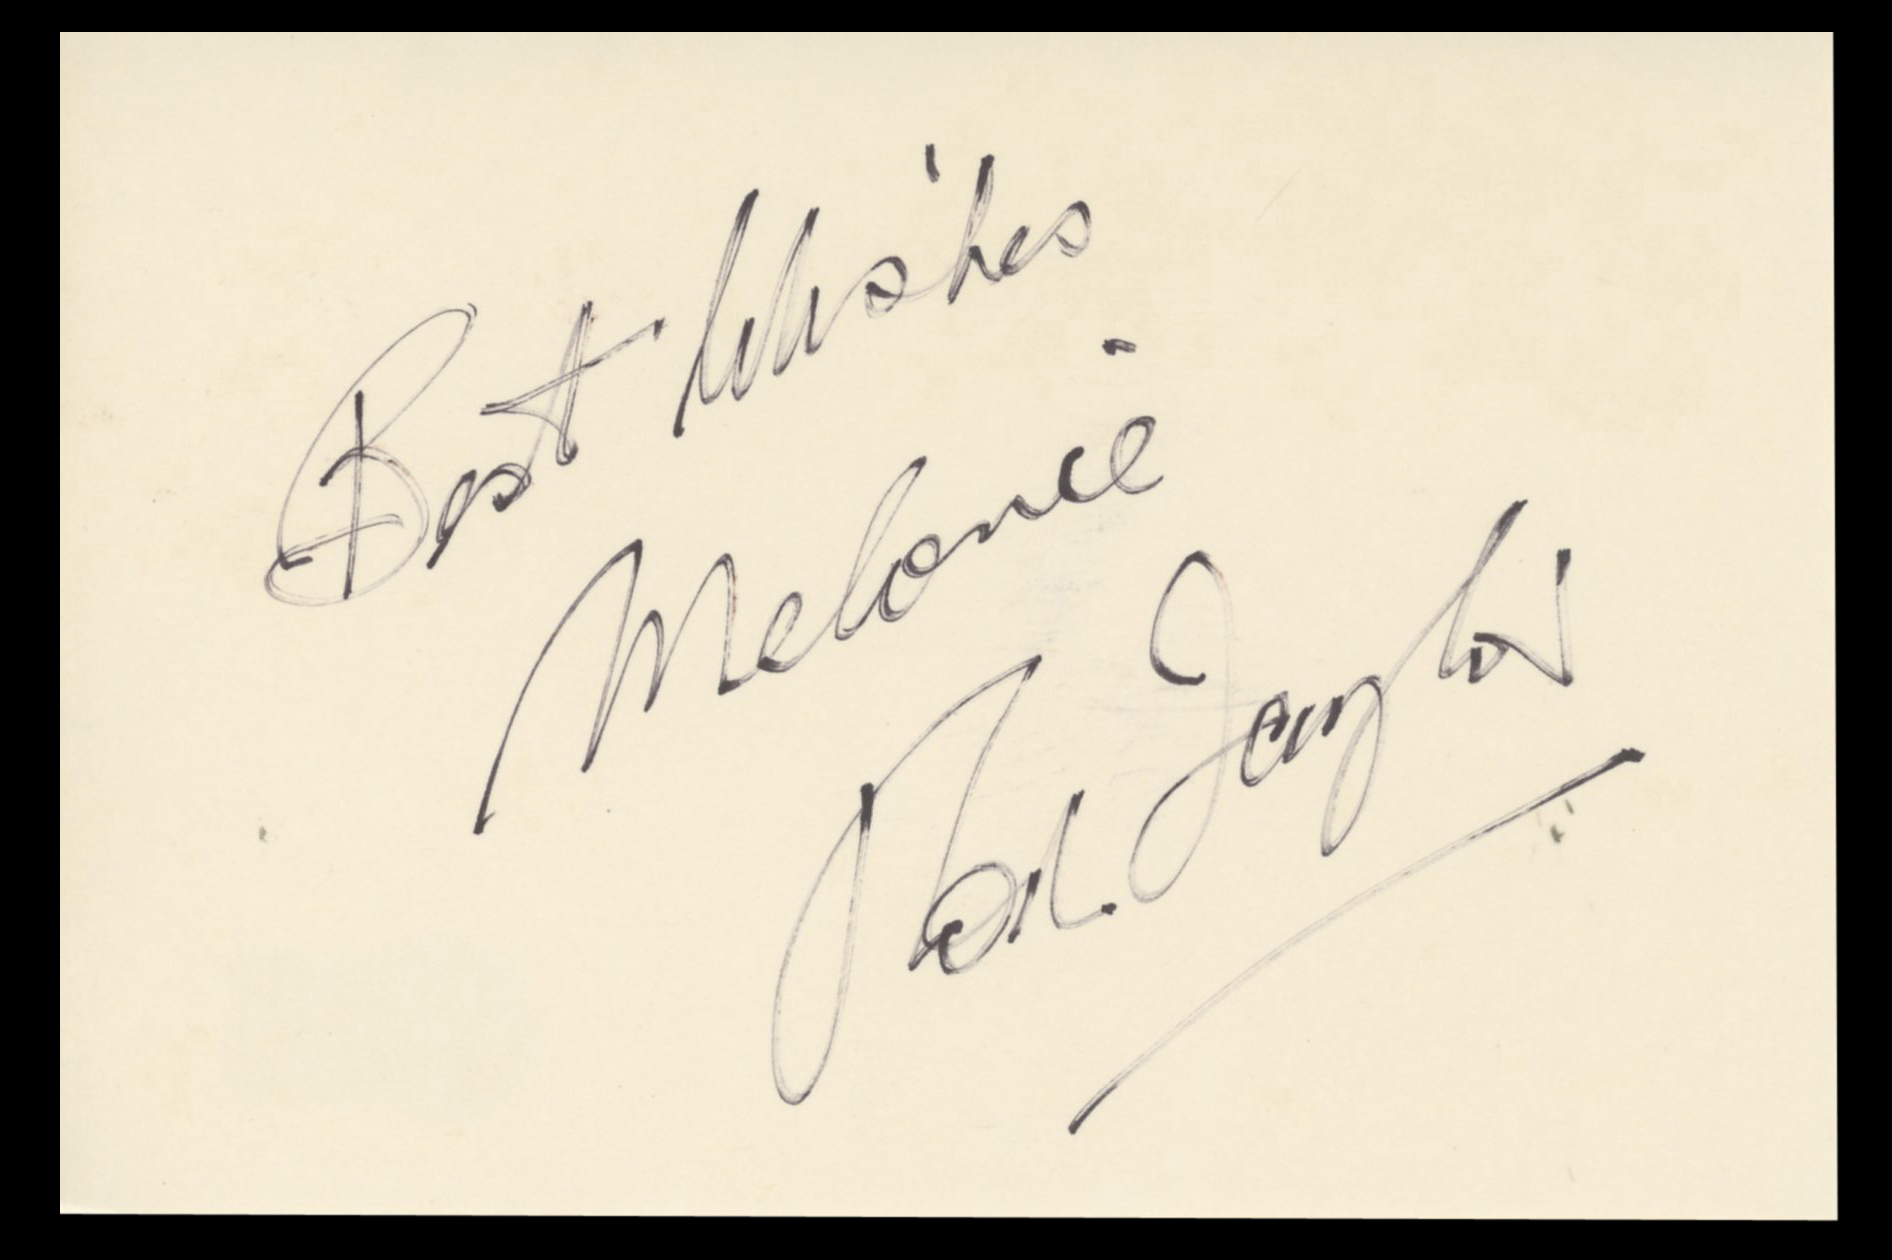 Best Wishes
Melanie
Rod. Taylor